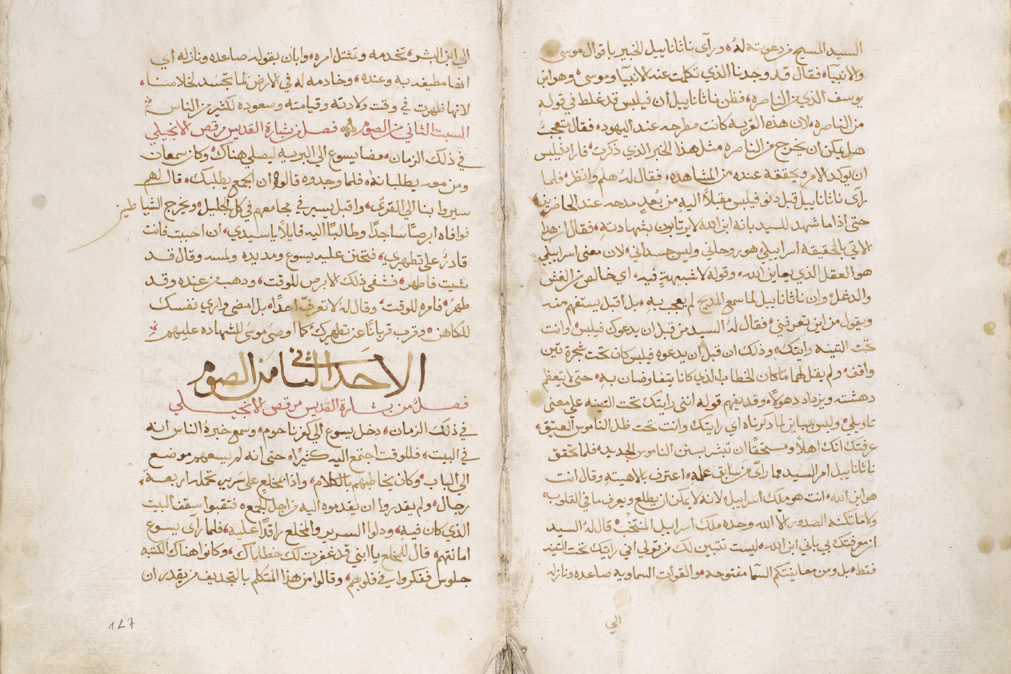 السيد المسيح من دعوته له ورأى ناثانابيل الخبير باقوال موسى
والانبيا فقال قد وجدنا الذي تكلمت عنه الانبيا وموسى وهو ابن
يوسف الذي من الناصره فظن ناثانابيل ان فيلبس قد غلط في قوله
من الناصره لان هذه القريه كانت مطرحه عند اليهود فقال بتعجب
هل يمكن ان يخرج من الناصره مثل هذا الخبر الذي ذكرت فاراد فيلبس
ان يوكد الامر ويحققه عنده من المشاهده فقال له هلم وانظر فلما
رأى ناثانابيل قبل دنو فيلبس مقبلا اليه من بعيد مدحه عند الحاضرين
حتى اذا ما شهد للسيد بانه ابن الله لا يرتابون بشهادته فقال ان هذا
الاتي بالحقيقه اسراييلي هو روحاني وليس جسداني لان معنى اسراييلي
هو العقل الذي يعاين الله وقوله لا شبهة فيه اي خالص من الغش
والدغل وان ناثانابيل لما سمع المديح لم يعجب به بل اقبل يستفهم منه
ويقول من اين تعرفني فقال له السيد من قبل ان يدعوك فيلبس وانت
تحت التينه رايتك وذلك ان قبل ان يدعوه فيلبس كان تحت شجرة تين
واقف ولم يقل لهما ما كان الخطاب الذي كانا يتفاوضان به حتى لا يتعظم
دهشته ويزداد ذهولا وقد يفهم قوله انني رايتك تحت التينه على معنى
تاويلي وليس مباين لما ذكرناه اي رايتك وانت تحت ظل الناموس العتيق
عرفتك انك اهلا ومستحقا ان تبشر بسنن الناموس الجديد فلما تحقق
ناثانابيل امر السيد مما رأى من سابق علمه اعترف بلاهيته وقال انت
هو ابن الله انت هو ملك اسراييل لانه لا يمكن ان يطلع ويعرف ما في القلوب
ولا ما تكنه الصدور الا الله وحده ملك اسراييل المنتخب قال له السيد
ان معرفتك بي باني ابن الله ليست تتبين لك من قولي اني رايتك تحت التينه
فقط بل ومن معاينتكم السما مفتوحه والقوات السماويه صاعده ونازله
الى
الى ابن البشر تخدمه وتمتثل امره وابان بقوله صاعده ونازله اي
انها مطيفه به وعنده وخادمه له في الارض لما تجسد لخلاصنا
لانها ظهرت في وقت ولادته وقيامته وصعوده لكثير من الناس
السبت الثاني من الصوم فصل من بشارة القديس مرقص الانجيلي
في ذلك الزمان مضا يسوع الى البريه ليصلي هناك وكان سمعان
ومن معه يطلبانه فلما وجدوه قالوا ان الجمع يطلبك قال لهم
سيروا بنا الى القرى واقبل يسير في مجامعهم في كل الجليل ويخرج الشياطين
فوافاه ابرص ساجدا وطالبا اليه قايلا يا سيدي ان احببت فانت
قادر على تطهيري فتحنن عليه يسوع ومد يده ولمسه وقال قد
شيت فاطهر فشفي ذلك الابرص للوقت وذهب من عنده وقد
طهر فامره للوقت وقال له لا تعرف احدا بل امض واري نفسك
للكاهن وقرب قربانا عن تطهيرك كما اوصى موسى للشهاده عليهم
الاحد الثاني من الصوم
فصل من بشارة القديس مرقص الانجيلي
في ذلك الزمان دخل يسوع الى كفرناحوم وسمع خبرة الناس انه
في البيت فللوقت اجتمع اليه كثيرا حتى انه لم يسعهم موضع
الى الباب وكان يخاطبهم بالكلام واذا مخلع على سرير تحمله اربعة
رجال ولم يقدروا ان يقدموه اليه من اجل الجمع فنقبوا سقف البيت
الذي كان فيه ودلوا السرير والمخلع راقدا عليه فلما رأى يسوع
امانتهم قال للمخلع يا ابني قد غفرت لك خطاياك وكانوا هناك الكتبه
جلوس ففكروا في قلوبهم وقالوا من هذا المتكلم بالتجديف من يقدر ان
127